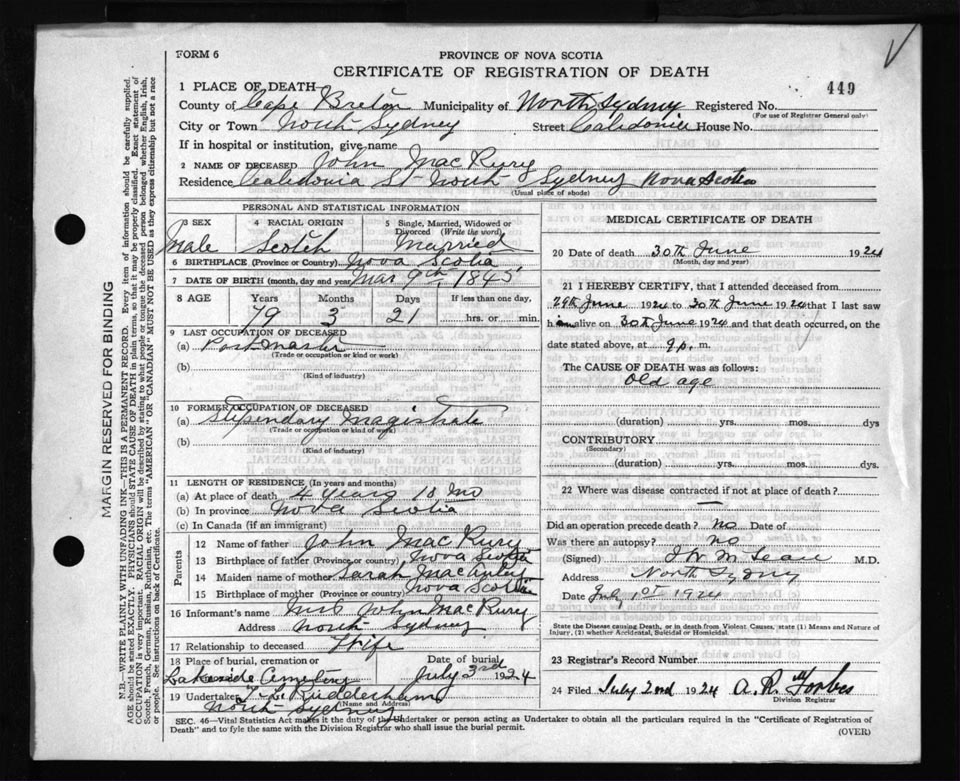 FORM 6
PROVINCE OF NOVA SCOTIA
CERTIFICATE OF REGISTRATION OF DEATH
449
1 PLACE OF DEATH
County of Cape Breton Municipality of North Sydney Registered No.
(For use of Registrar General only)
City or Town North Sydney Street Caledonia House No.
If in hospital or institution, give name
2 NAME OF DECEASED John MacRury
Residence Caledonia St North Sydney Nova Scotia
(Usual place of abode)
PERSONAL AND STATISTICAL INFORMATION
3 SEX 4 RACIAL ORIGIN 5 Single, Married, Widowed or Divorced (Write the word)
Male Scotch Married
6 BIRTHPLACE (Province or Country) Nova Scotia
7 DATE OF BIRTH (month, day and year) Mar 9th 1845
8 AGE Years Months Days If less than one day,
79 3 21 hrs. or min.
9 LAST OCCUPATION OF DECEASED
(a) Postmaster
(Trade or occupation or kind or work)
(b)
(Kind of industry)
10 FORMER OCCUPATION OF DECEASED
(a) Stipendary Magistrate
(Trade or occupation or kind of work)
(b)
(Kind of industry)
11 LENGTH OF RESIDENCE (In years and months)
(a) At place of death 4 years 10 Mo
(b) In province Nova Scotia
(c) In Canada (if an immigrant)
Parents
12 Name of father John MacRury
13 Birthplace of father (Province or country) Nova Scotia
14 Maiden name of mother Sarah
15 Birthplace of mother (Province or country) Nova Scotia
16 Informant's name Mrs John MacRury
Address North Sydney
17 Relationship to deceased Wife
18 Place of burial, cremation or Date of burial
Lakeside Cemetery July 3rd 1924
19 Undertaker
(Name and Address)
North Sydney
MEDICAL CERTIFICATE OF DEATH
20 Date of death 30th June 1924
(Month, day and year)
21 I HEREBY CERTIFY, that I attended deceased from
29th June 1924 to 30th June 1924 that I last saw
him alive on 30th June 1924 and that death occurred, on the
date stated above, at 9 p. m.
The CAUSE OF DEATH was as follows:
Old age
(duration) yrs. mos. dys
CONTRIBUTORY
(Secondary)
(duration) yrs. mos. dys.
22 Where was disease contracted if not at place of death?
—
Did an operation precede death? no Date of
Was there an autopsy? no
(Signed) M.D.
Address North Sydney
Date July 1st 1924
State the Disease causing Death, or in death from Violent Causes, state (1) Means and Nature of
Injury, (2) whether Accidental, Suicidal or Homicidal.
23 Registrar's Record Number
24 Filed July 2nd 1924 A. R. Forbes
Division Registrar
SEC. 46—Vital Statistics Act makes it the duty of the Undertaker or person acting as Undertaker to obtain all the particulars required in the "Certificate of Registration of
Death" and to file the same with the Division Registrar who shall issue the burial permit.
(OVER)
MARGIN RESERVED FOR BINDING
N.B.—WRITE PLAINLY WITH UNFADING INK—THIS IS A PERMANENT RECORD. Every item of information should be carefully supplied.
AGE should be stated EXACTLY. PHYSICIANS should STATE CAUSE OF DEATH in plain terms, so that it may be properly classified. Exact statement of
OCCUPATION is very important. RACIAL ORIGIN will be described by stating to what people or tongue the deceased person belonged whether English, Irish,
Scotch, French, German, Russian, Ruthenian, etc. The terms "AMERICAN" OR "CANADIAN" MUST NOT BE USED as they express citizenship but not a race
or people. See instructions on back of Certificate.